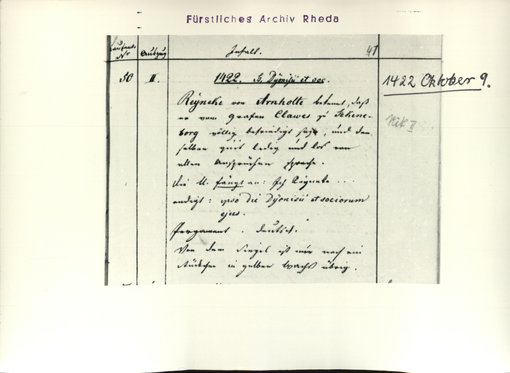 Fürstliches Archiv Rheda
Laufende Nr. Auszug Inhalt. 41
50 II. 1422. S. Dÿonisii et soc.
Reÿneke von Arnholte bekennt, daß
er vom Grafen Clawes zu Tekene-
borg völlig befriedigt sey, und den
selben quit ledig und los von
allen Ansprüchen spreche.
Die U. fängt an: Ich Reyneke ...
endigt: ipso die Dÿonisii et sociorum
ejus.
Pergament. Deutsch.
Von dem Siegel ist nur noch ein
Stückchen in gelbem Wachs übrig.
1422 Oktober 9.